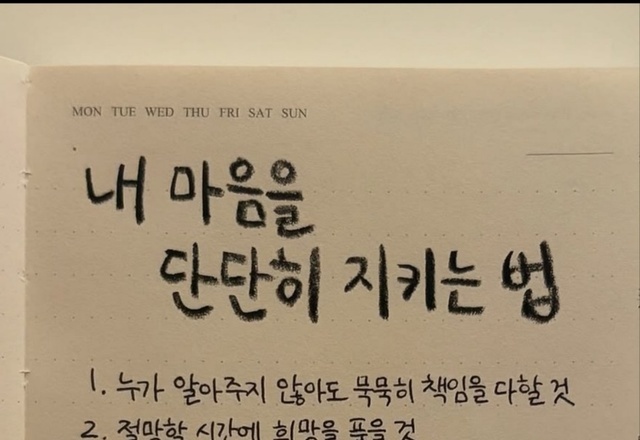 MON TUE WED THU FRI SAT SUN
내 마음을
단단히 지키는 법
1. 누가 알아주지 않아도 묵묵히 책임을 다할 것
2. 절망할 시간에 희망을 품을 것